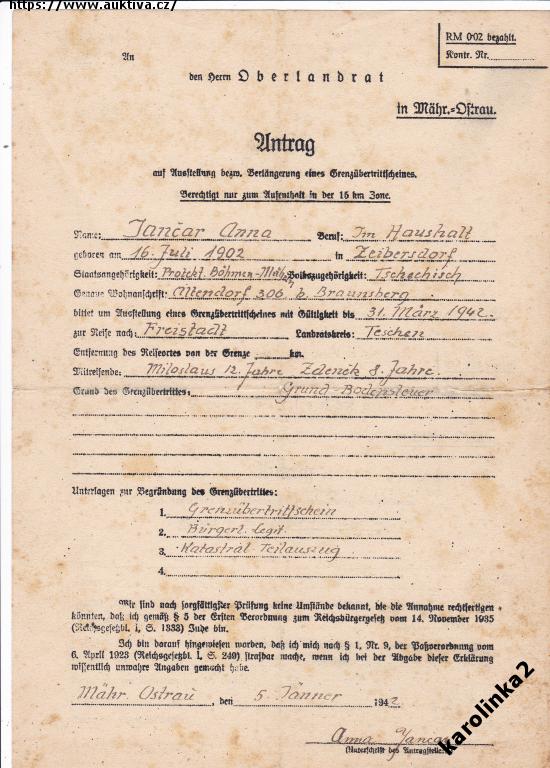 https://www.auktiva.cz/
RM 0·02 bezahlt.
Kontr. Nr.
An
den Herrn Oberlandrat
in Mähr.-Ostrau.
Antrag
auf Ausstellung bezw. Verlängerung eines Grenzübertrittscheines.
Berechtigt nur zum Aufenthalt in der 15 km Zone.
Name: Jančar Anna Beruf: Im Haushalt
geboren am 16. Juli 1902 in Zeibersdorf
Staatsangehörigkeit: Protekt. Böhmen-Mähren Volkszugehörigkeit: Tschechisch
Genaue Wohnanschrift: Altendorf 306 b. Braunsberg
bittet um Ausstellung eines Grenzübertrittscheines mit Gültigkeit bis 31. März 1942.
zur Reise nach: Freistadt Landratskreis: Teschen
Entfernung des Reiseortes von der Grenze km.
Mitreisende: Miloslaus 12. Jahre Zdeněk 8. Jahre.
Grund des Grenzübertrittes: Grund-Bodensteuer
Unterlagen zur Begründung des Grenzübertrittes:
1. Grenzübertrittschein
2. Bürgerl. Legit.
3. Katastral-Teilauszug
4.
Wir sind nach sorgfältigster Prüfung keine Umstände bekannt, die die Annahme rechtfertigen
könnten, daß ich gemäß § 5 der Ersten Verordnung zum Reichsbürgergesetz vom 14. November 1935
(Reichsgesetzbl. I, S. 1333) Jude bin.
Ich bin darauf hingewiesen worden, daß ich mich nach § 1, Nr. 9, der Paßverordnung vom
6. April 1923 (Reichsgesetzbl. I, S. 249) strafbar mache, wenn ich bei der Abgabe dieser Erklärung
wissentlich unwahre Angaben gemacht habe.
Mähr. Ostrau, den 5. Jänner 1942
Anna Jančar
(Unterschrift des Antragstellers)
karolinka2